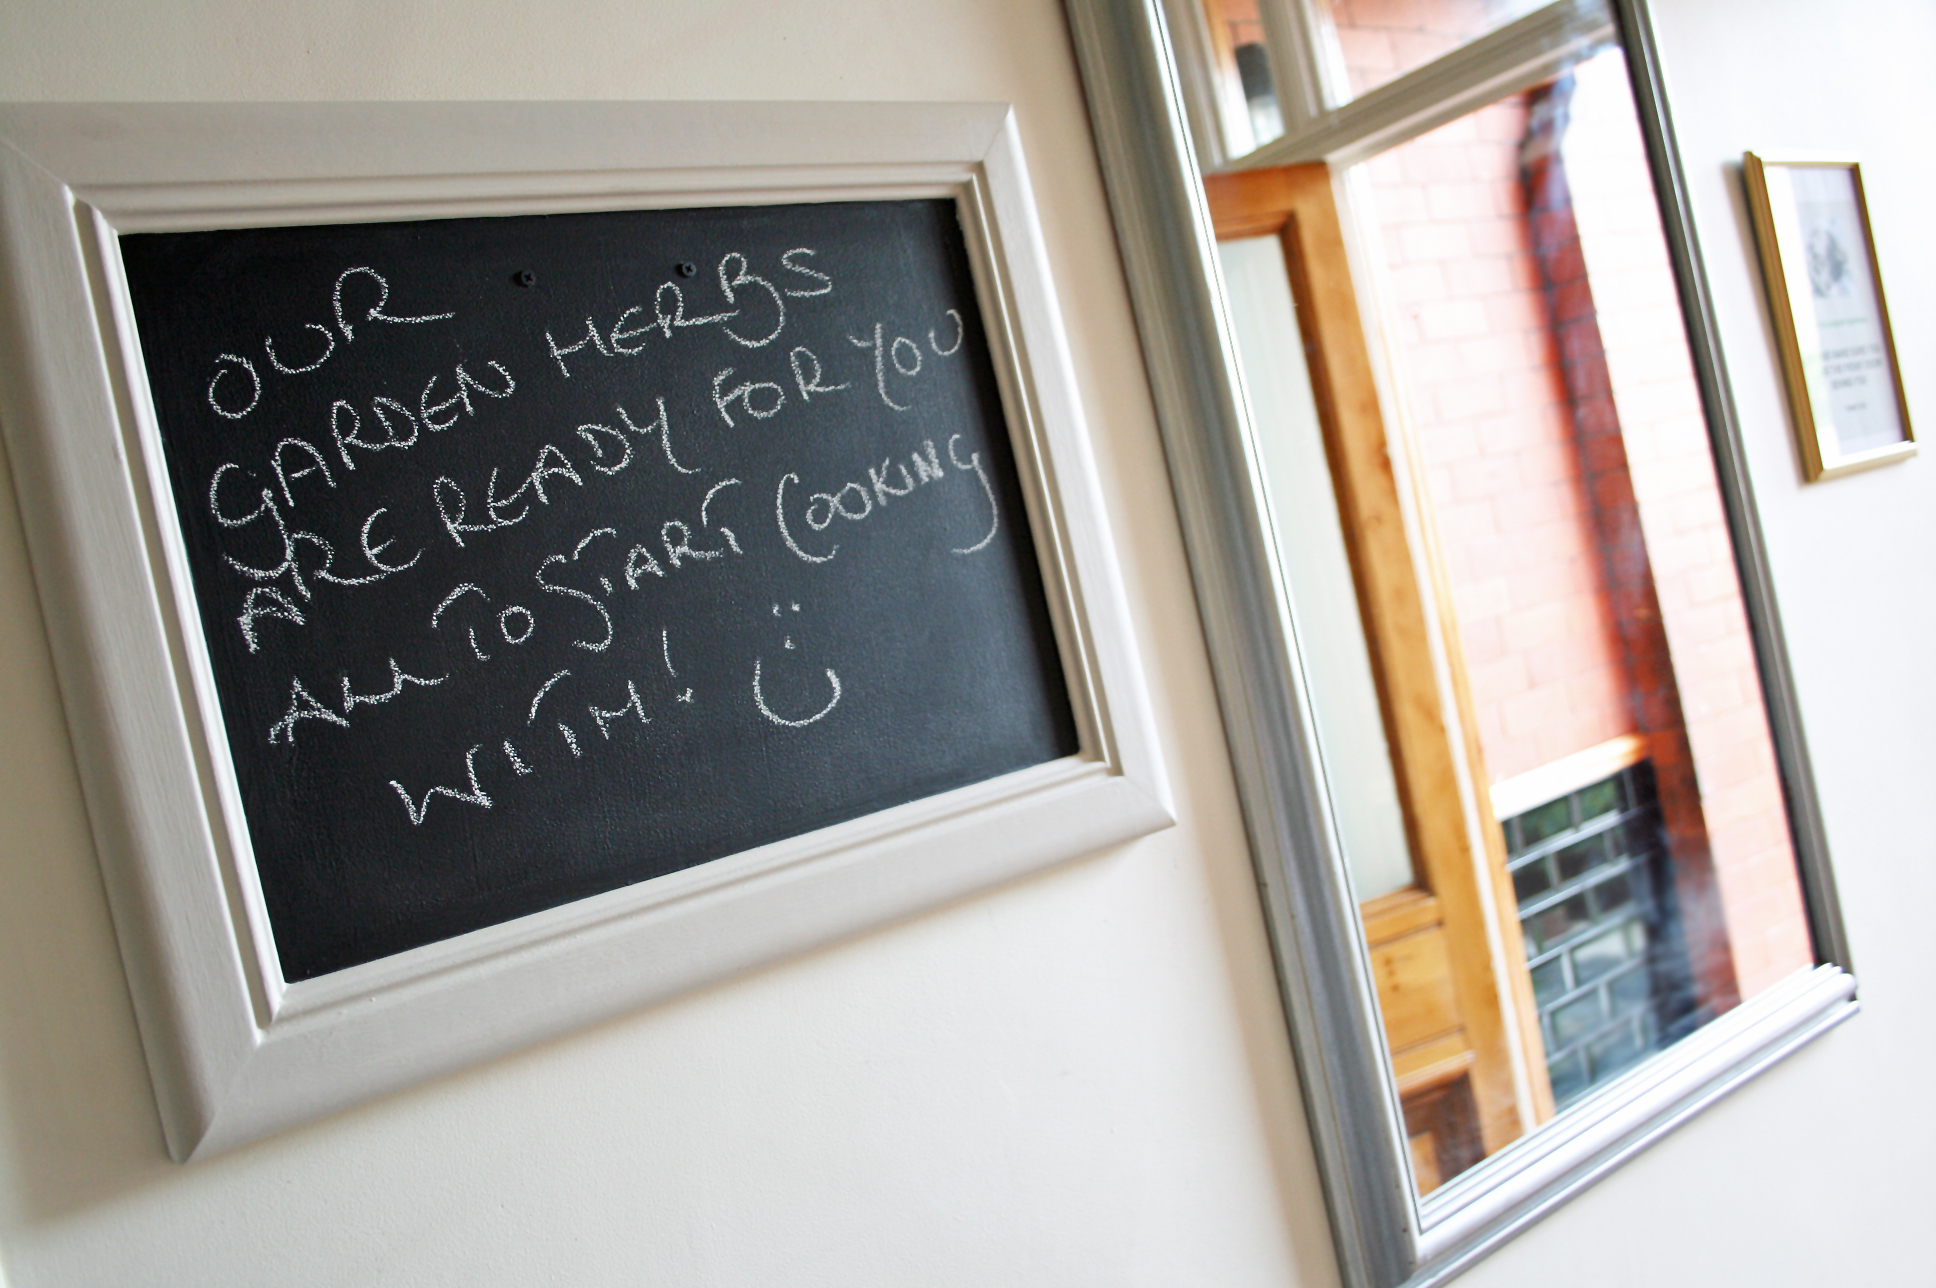 OUR
GARDEN HERBS
ARE READY FOR YOU
ALL TO START COOKING
WITH!